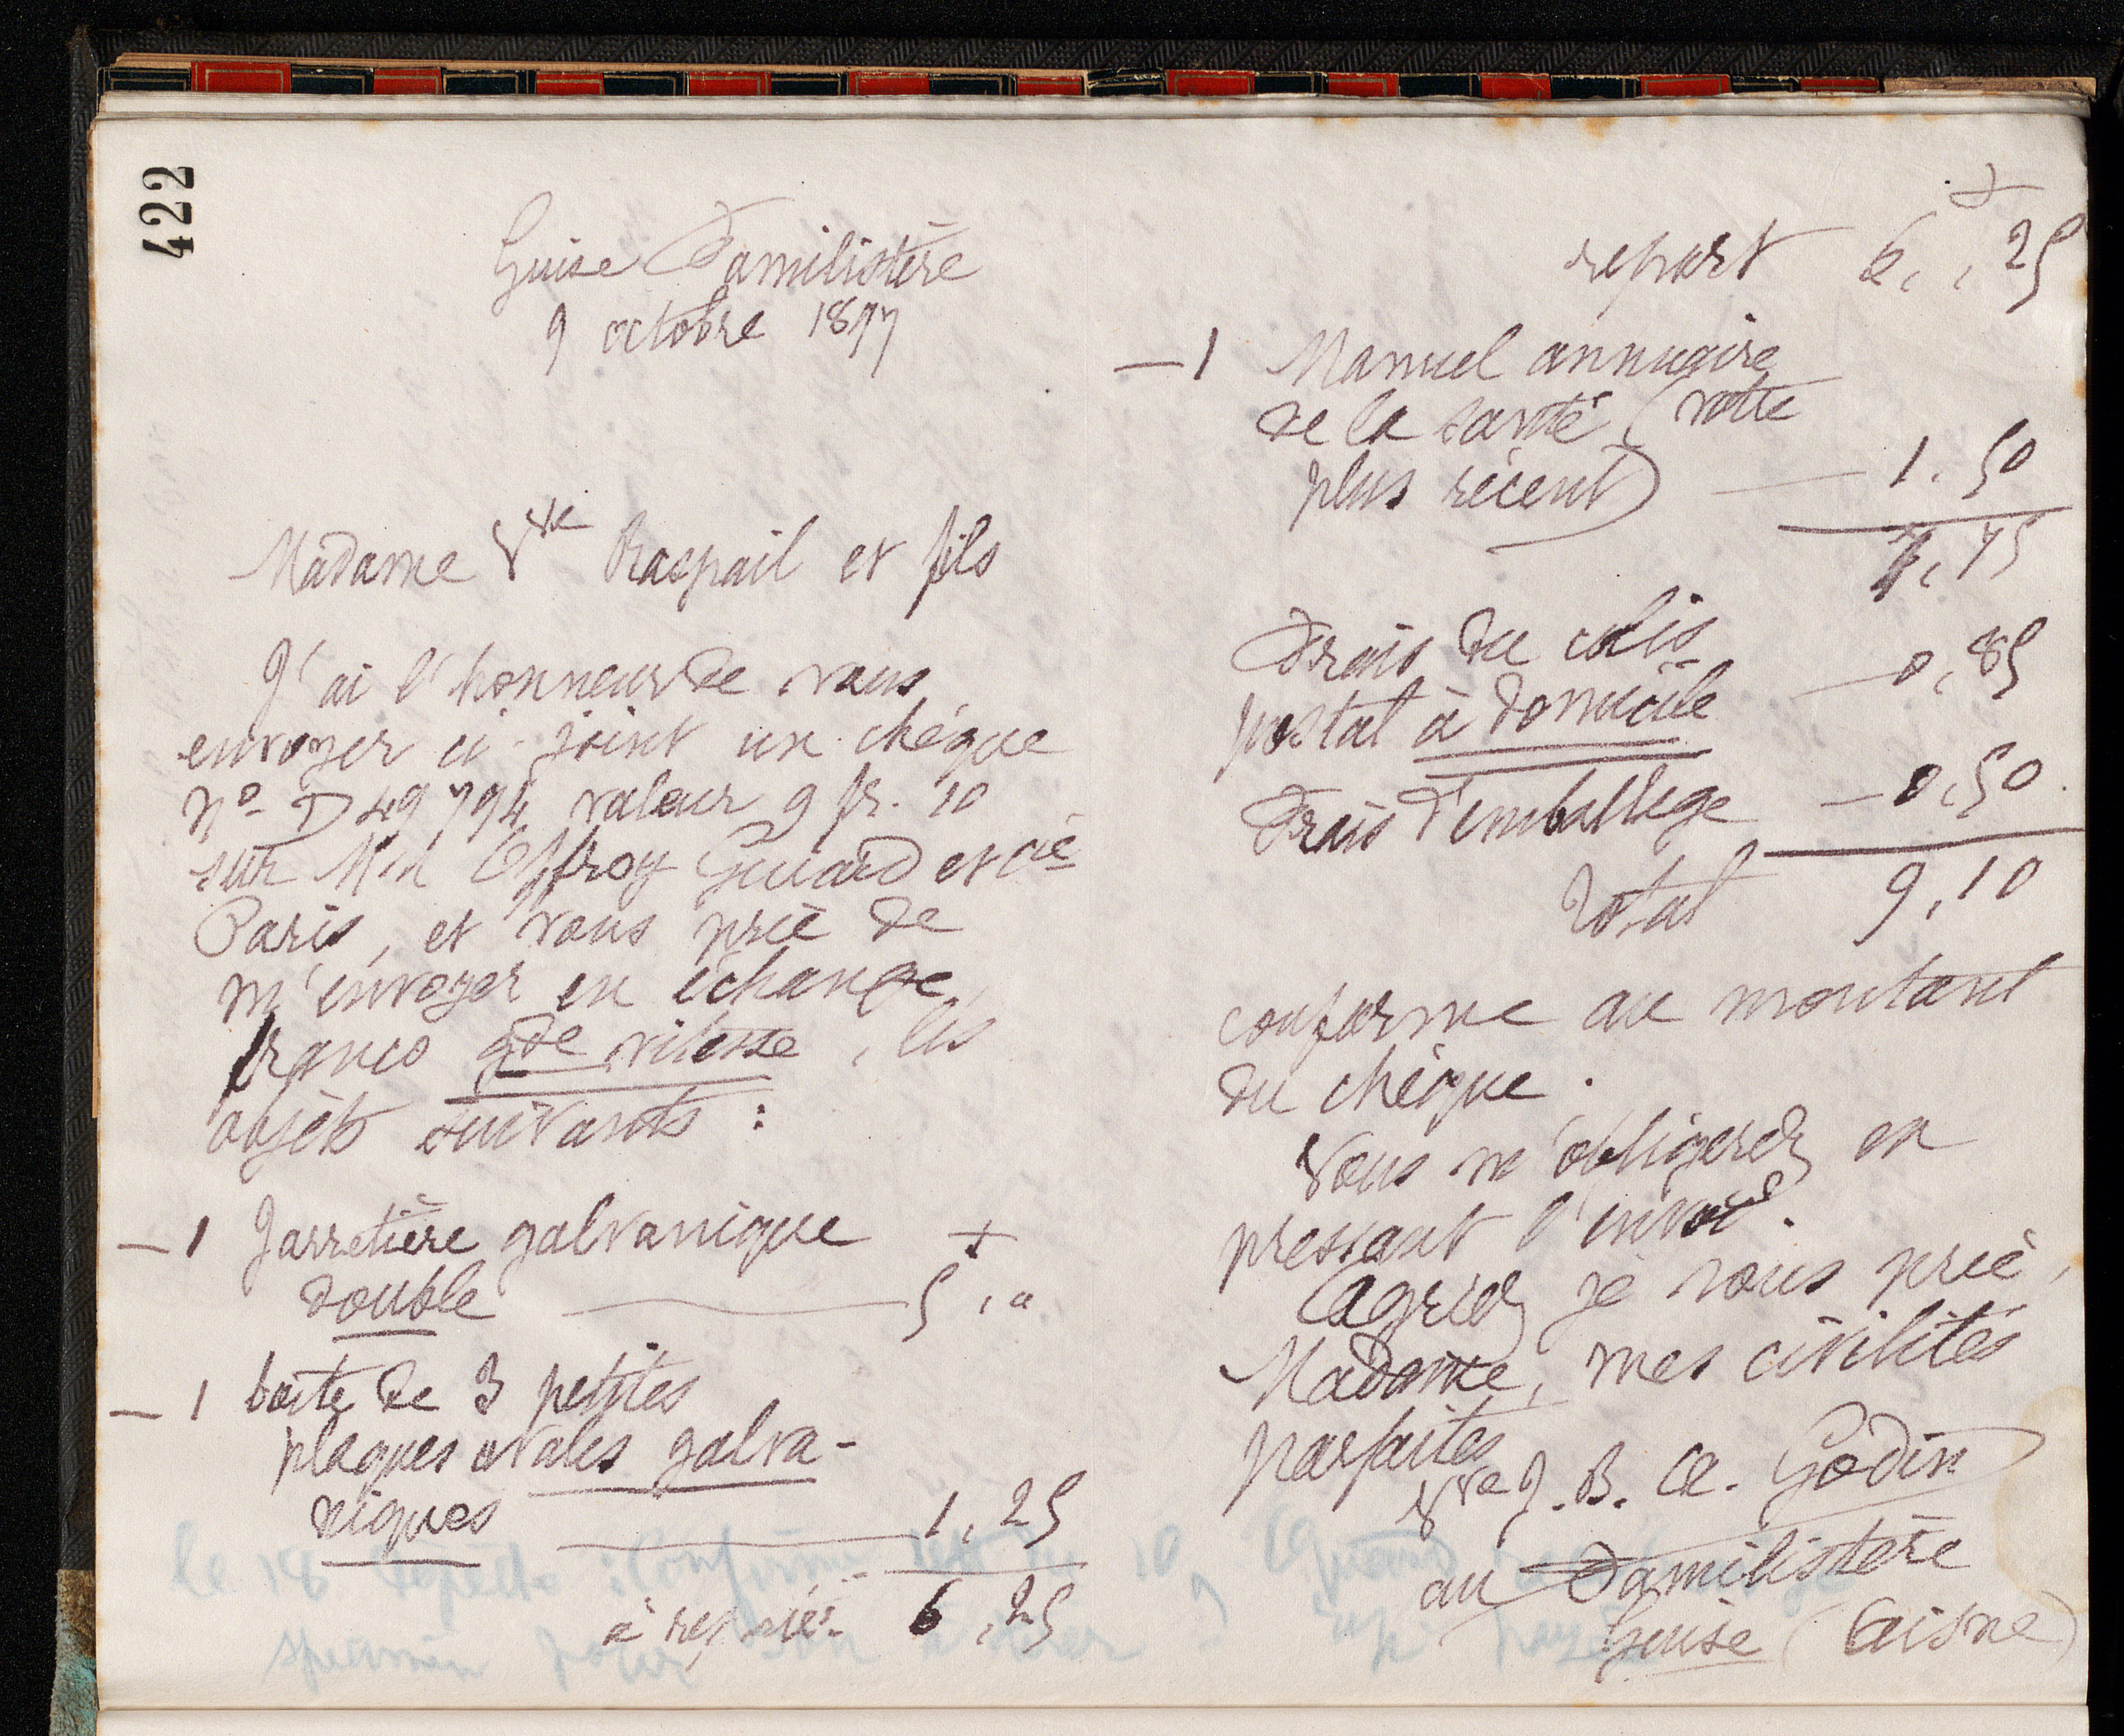 422
Guise Familistère
9 octobre 1897
Madame Vve Raspail et fils
J'ai l'honneur de vous
envoyer ci-joint un chéque
No D 49794 valeur 9 fr. 10
sur MM Offroy Guiard et Cie
Paris, et vous prie de
m'envoyer en échange,
franco gde vitesse, les
objets suivants :
— 1 Jarretière galvanique +
double — 5 , "
— 1 boite de 3 petites
plaques ovales galva-
niques — 1, 25
à reporter 6, 25
+
report 6, , 25
— 1 Manuel annuaire
de la santé (votre
plus récent) — 1. 50
7, 75
Frais du colis
postal à domicile — 0, 85
Frais d'emballage — 0, 50
Total 9, 10
conforme au montant
du chéque.
Vous m'obligerez en
pressant l'envoi.
Agréez je vous prie,
Madame, mes civilités
parfaites
Vve J. B. A. Godin
au Familistère
Guise (Aisne)